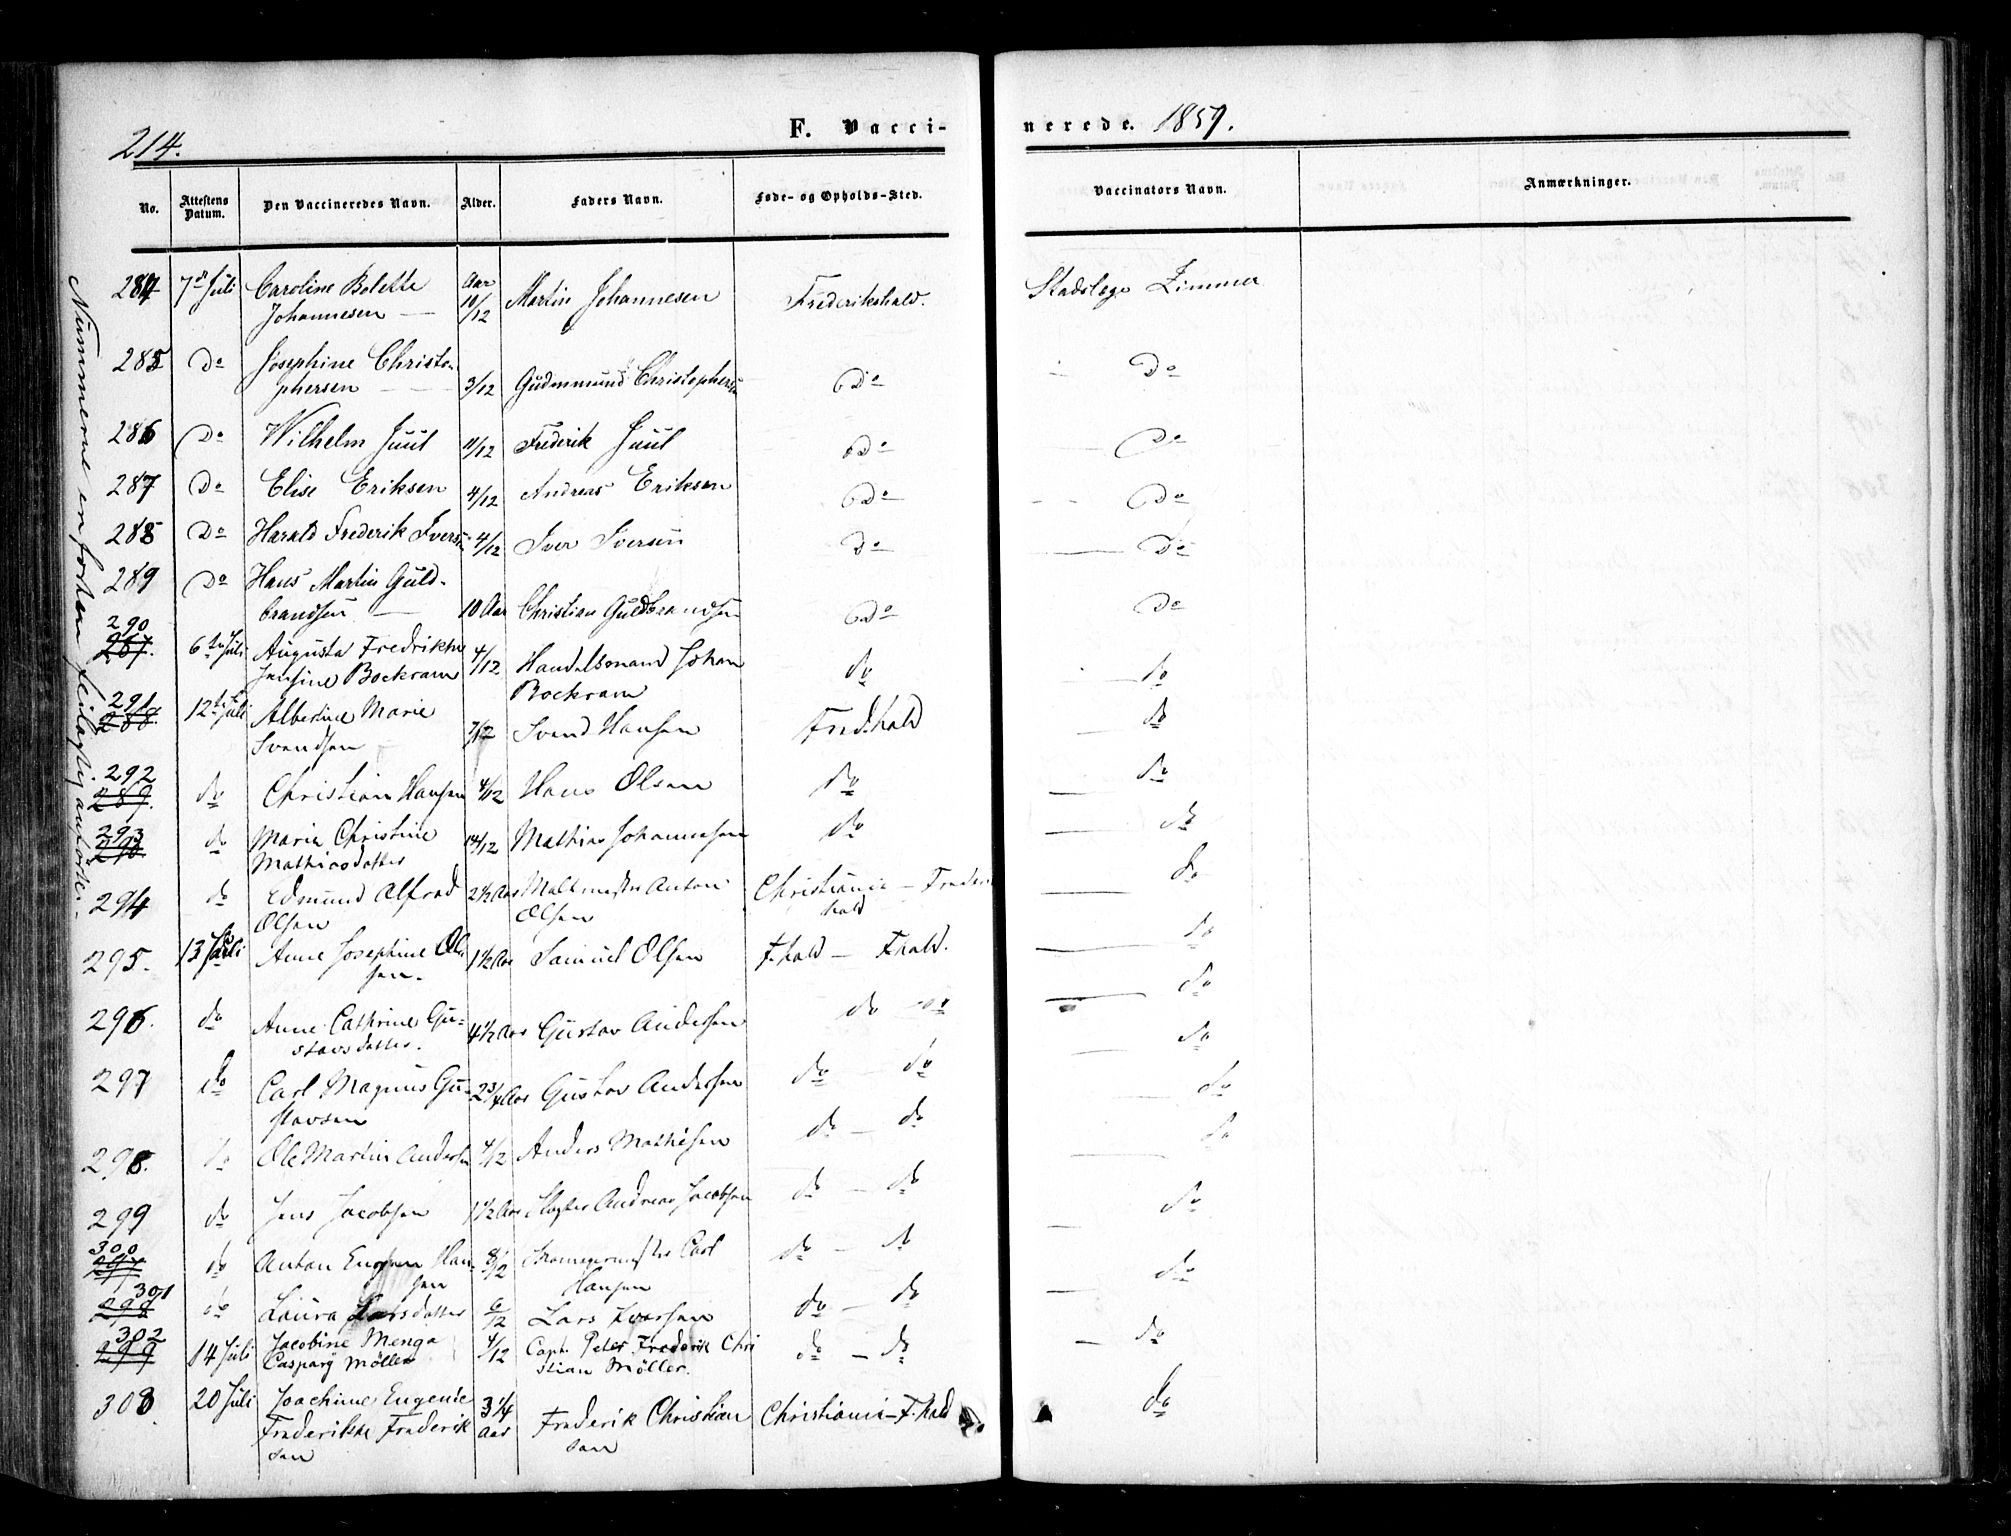 214.
F. Vacci-
nerede. 1857.
No. Attestens Datum. Den Vaccineredes Navn. Alder. Faders Navn. Føde- og Opholds-Sted. Vaccinators Navn. Anmærkninger.
Nummerne en forhen feilagtig anførte.
284 7de Juli Caroline Bolette Aar Martin Johannesen Frederikshald. Stadslæge Zimmer
Johannesen — 10/12
285 Do Josephine Christo-
phersen — 3/12 Gudmmund Christophersen Do Do
286 Do Wilhelm Juul 11/12 Frederik Juul Do Do
287 Do Elise Eriksen 4/12 Andreas Eriksen Do Do
288 Do Harald Frederik Iversen 4/12 Iver Iversen Do Do
289 Do Hans Martin Guld-
brandsen — 10 Aar Christian Guldbrandsen Do Do
290
287. 6te Juli Augusta Fredrikke 4/12 Handelsmand Johan do do
Josine Bockram Bockram
291
288. 12te Juli Albertine Marie
Svendsen 7/12 Svend Hansen Fredhald do
292
289. do Christian Hansen 4/12 Hans Olsen do do
293
290 do Marie Christine 10/12 Mathias Johannesen do do
Mathiasdatter
294 do Edmund Alfred 2½ Aar Maltmester Anton Christiania — Fredr. do
Olsen Olsen hald
295. 13 Juli Anne Josephine Ol- 1½ Aar Samuel Olsen F.hald — F.hald. do
sen.
296. do Anne Cathrine Gu- 4½ Aar Gustav Andersen do — do do
stavsdatter.
297 do Carl Magnus Gu- 2¾ Aar Gustav Andersen do — do do
stavsen
298. do Ole Martin Andersen 4/12 Anders Mathisen do — do do
299 do Jens Jacobsen 1½ Aar Slagter Andreas Jacobsen do — do do
300
297 do Anton Eugen Han- 8/12 Carl do — do do
sen Hansen
301
298 do Laura Larsdatter 6/12 Lars Iversen do — do do
302
299 14 Juli Jacobine Menga 4/12 Capt. Peter Frederik Chri do — do do
Caspary Möller stian Möller.
303 20 Juli Joachime Eugenie 3¼ Frederik Christian Christiania — F.hald do
Frederikke Frederik Aar sen
sen